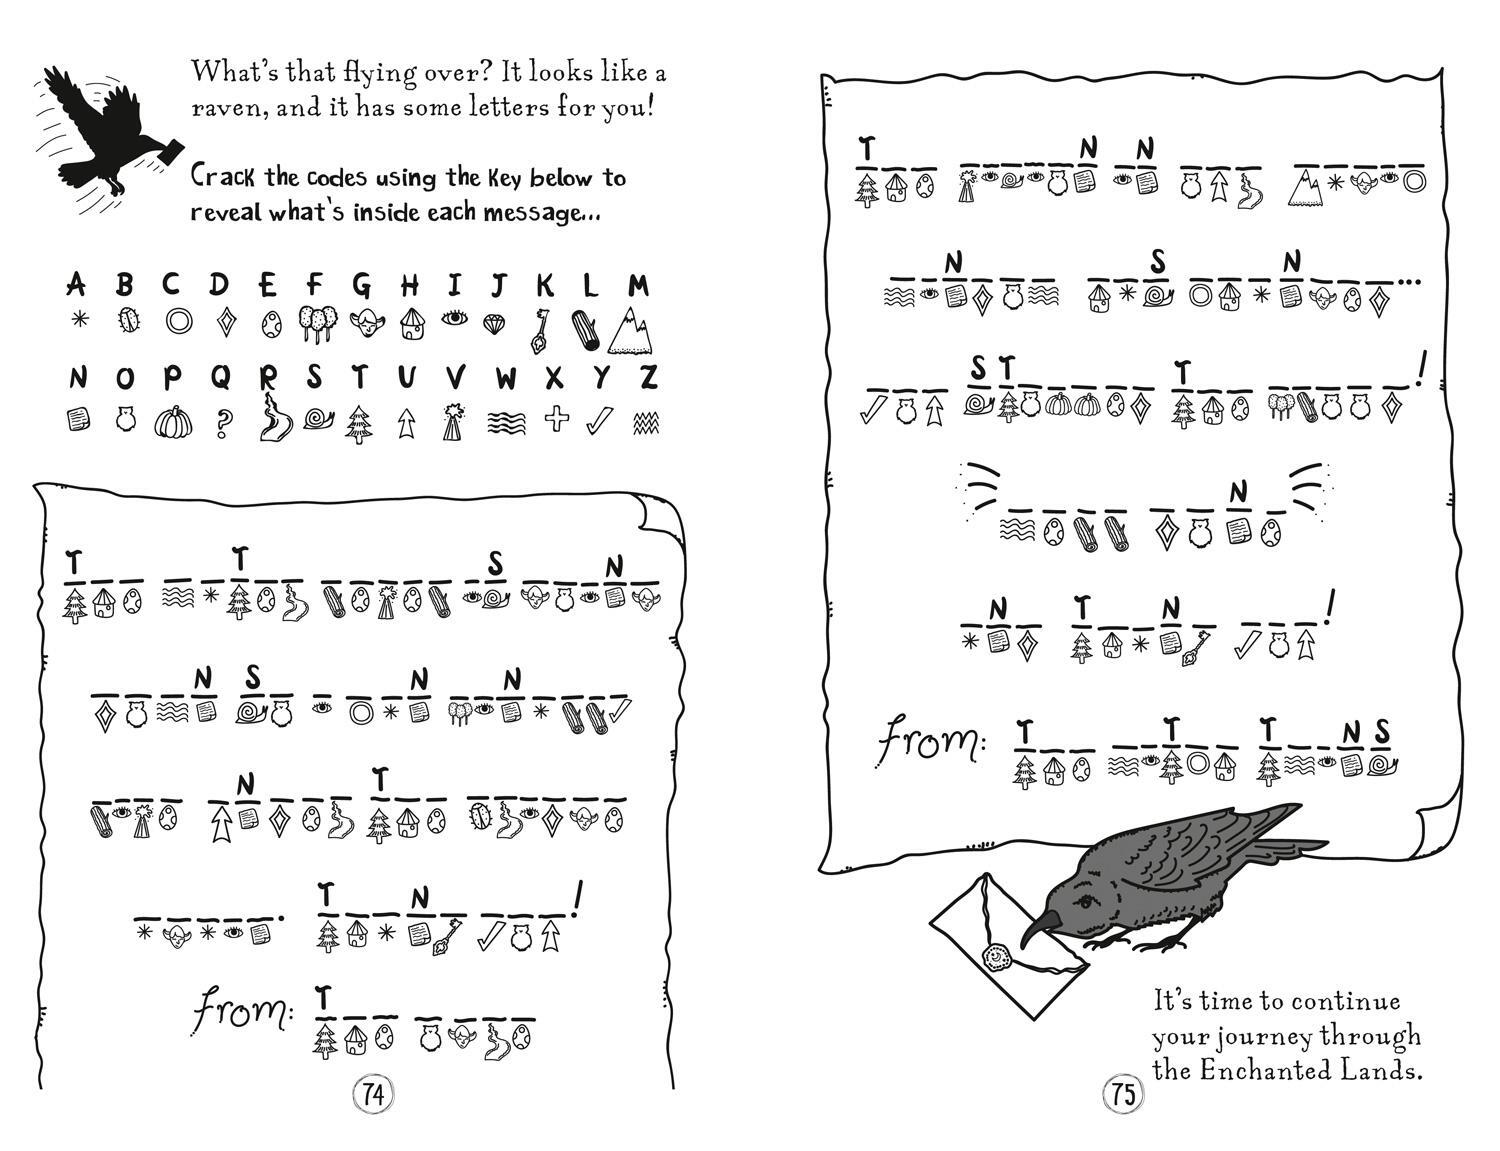 What's that flying over? It looks like a
raven, and it has some letters for you!
Crack the codes using the key below to
reveal what's inside each message...
A B C D E F G H I J K L M
N O P Q R S T U V W X Y Z
?
T T S N
N S N N
N T
T N !
from: T
74
T N N
N S N ...
S T T !
N
N T N !
from: T T T N S
It's time to continue
your journey through
the Enchanted Lands.
75